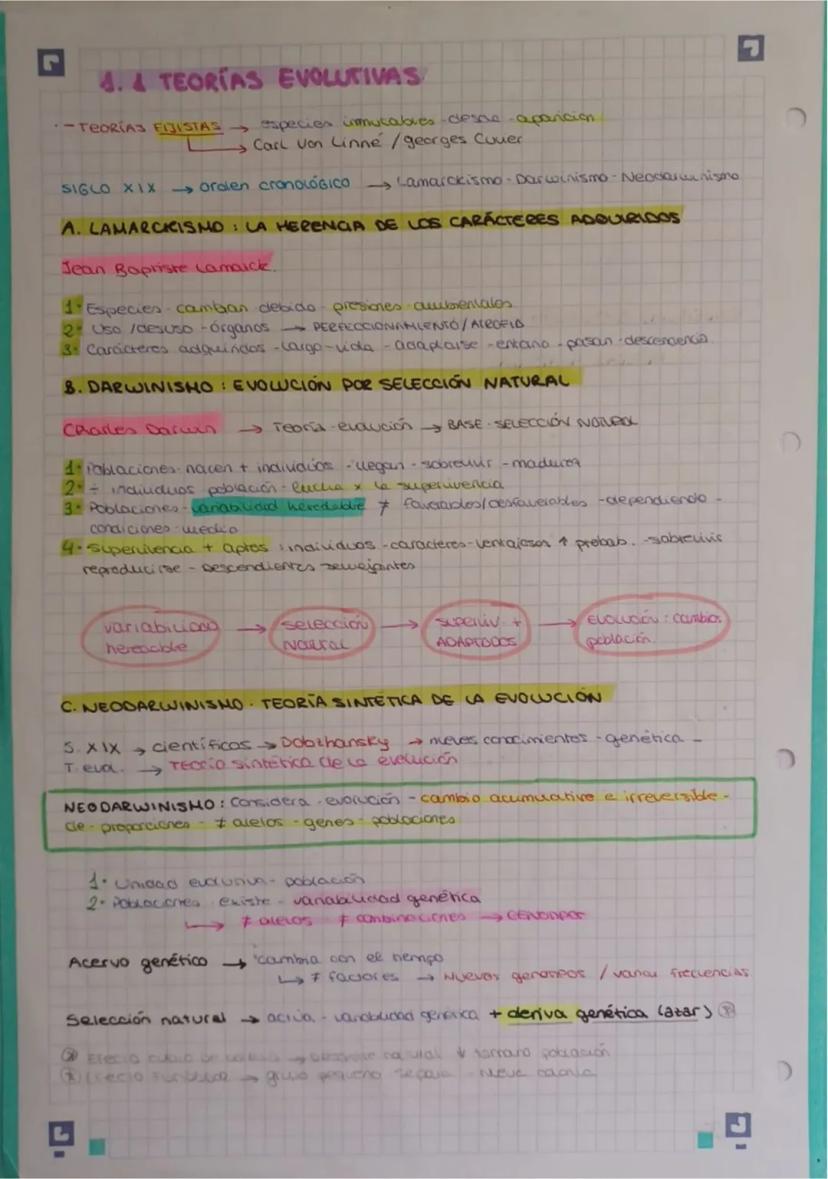 1.1 TEORÍAS EVOLUTIVAS
- TEORÍAS FIJISTAS → especies inmutables - desde - aparición
→ Carl Von Linné / georges Cuvier
SIGLO XIX → orden cronológico → Lamarckismo - Darwinismo - Neodarwinismo
A. LAMARCKISMO : LA HERENCIA DE LOS CARÁCTERES ADQUIRIDOS
Jean Baptiste Lamarck.
1· Especies - cambian debido - presiones ambientales
2· Uso / desuso - órganos → PERFECCIONAMIENTO / ATROFIA
3· Carácteres adquiridos - largo - vida - adaptarse - entorno - pasan - descendencia.
B. DARWINISMO : EVOLUCIÓN POR SELECCIÓN NATURAL
Charles Darwin → Teoría - evolución → BASE - SELECCIÓN NATURAL
1· Poblaciones - nacen + individuos - llegan - sobrevivir - madurez
2· ÷ individuos población - lucha x la supervivencia
3· Poblaciones - variabilidad heredable ≠ favorables/desfavorables - dependiendo -
condiciones - medio
4· Supervivencia + aptos : individuos - caracteres - ventajosos ↑ probab. - sobrevivir
reproducirse - descendientes semejantes
variabilidad heredable → selección natural → superviv. + ADAPTADOS → Evolución : cambios población.
C. NEODARWINISMO · TEORÍA SINTÉTICA DE LA EVOLUCIÓN
S. XIX → científicos → Dobzhansky → nuevos conocimientos - genética -
T. evol. → Teoría sintética de la evolución
NEODARWINISMO : Considera - evolución - cambio acumulativo e irreversible -
de - proporciones - ≠ alelos - genes - poblaciones
1· Unidad evolutiva - población
2· Poblaciones existe - variabilidad genética
→ ≠ alelos ≠ combinaciones → GENOTIPOS
Acervo genético → cambia con el tiempo
↳ ≠ factores → Nuevos genotipos / varían frecuencias
Selección natural → actúa - variabilidad genética + deriva genética (azar)
Efecto cuello de botella → natural ↓ tamaño población
Efecto fundador → grupo pequeño separa - nueva colonia